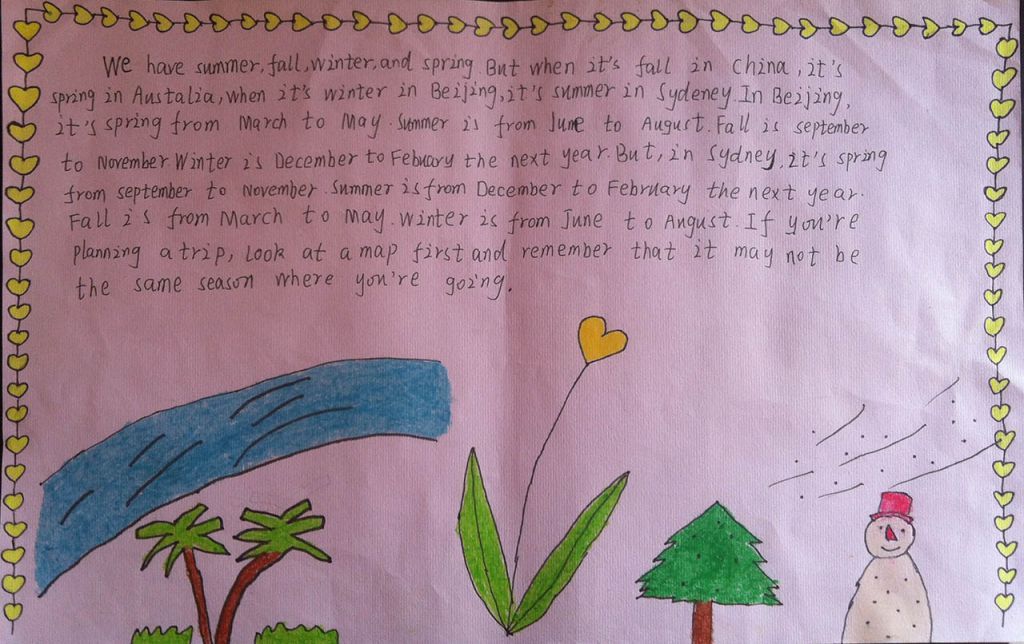 We have summer, fall, winter, and spring. But when it's fall in China, it's
spring in Austalia, when it's winter in Beijing, it's summer in Sydeney. In Beijing,
it's spring from March to May. Summer is from June to August. Fall is september
to November. Winter is December to Febuary the next year. But, in Sydney, it's spring
from september to November. Summer is from December to February the next year.
Fall is from March to May. Winter is from June to August. If you're
planning a trip, look at a map first and remember that it may not be
the same season where you're going.